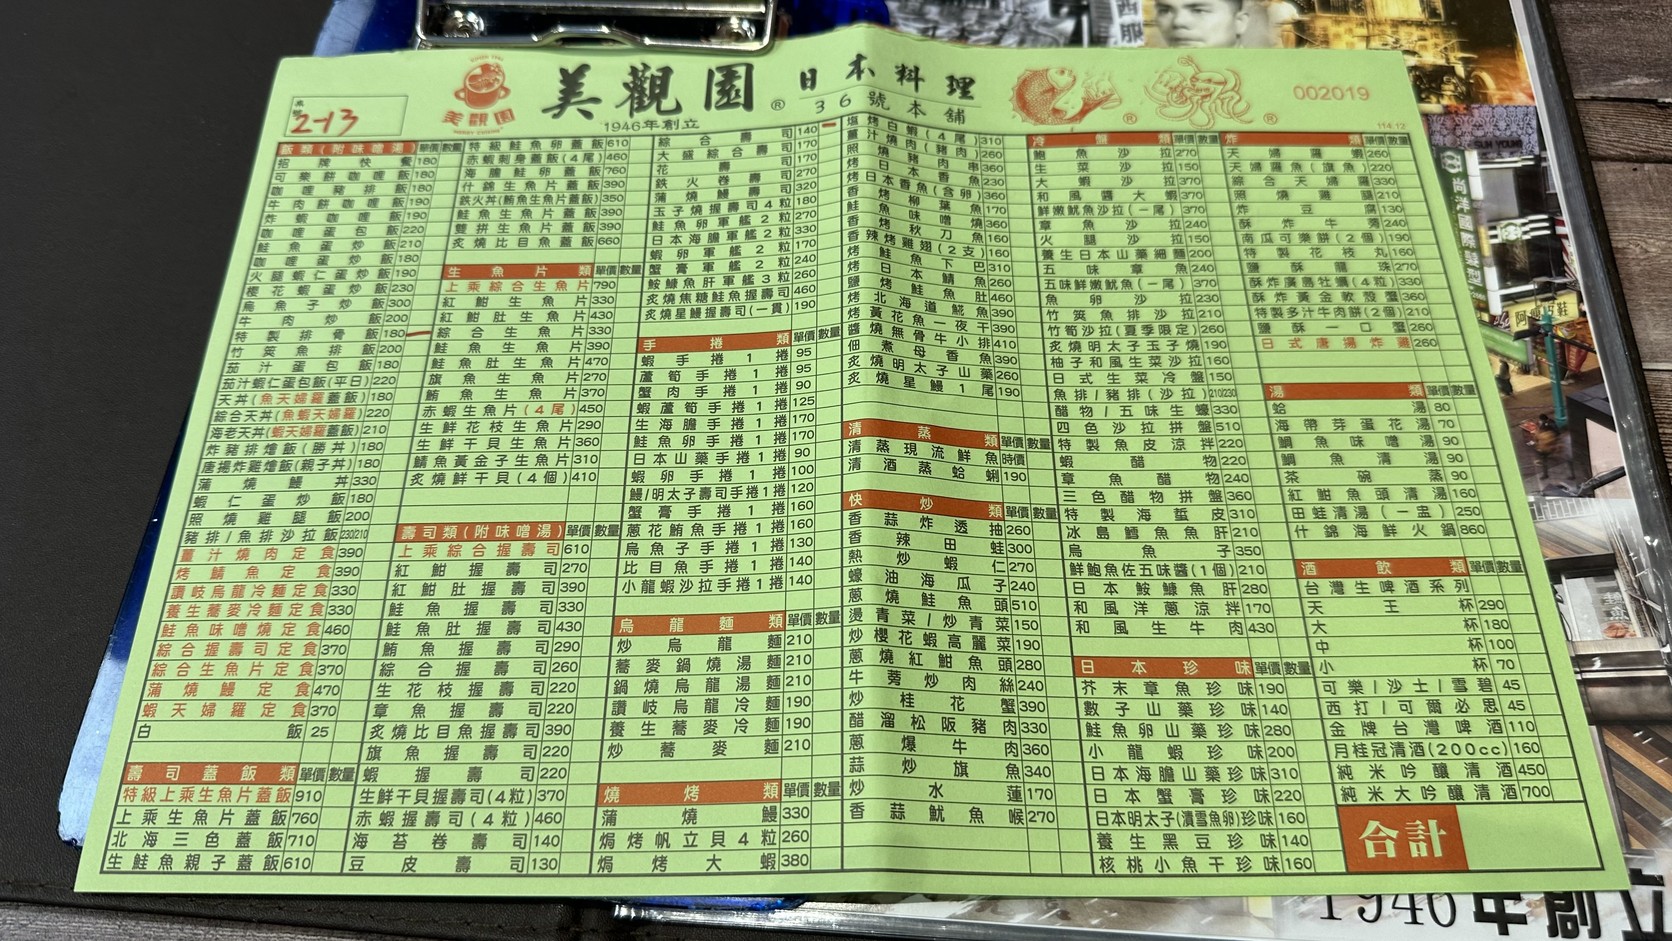 美觀園
美觀園 ® 日本料理
36號本舖
1946年創立
® ®
002019
114.12
桌號 2-13
飯類(附味噌湯) 單價 數量
招牌快餐 180
可樂餅咖哩飯 180
咖哩豬排飯 180
牛肉餅咖哩飯 190
炸蝦咖哩飯 190
咖哩蛋包飯 220
鮭魚蛋炒飯 210
咖哩蛋炒飯 180
火腿蝦仁蛋炒飯 190
櫻花蝦蛋炒飯 230
烏魚子炒飯 300
牛肉炒飯 200
特製排骨飯 180
竹筴魚排飯 200
茄汁蛋包飯 180
茄汁蝦仁蛋包飯(平日) 220
天丼(魚天婦羅蓋飯) 180
綜合天丼(魚蝦天婦羅) 220
海老天丼(蝦天婦羅蓋飯) 210
炸豬排燴飯(勝丼) 180
唐揚炸雞燴飯(親子丼) 180
蒲燒鰻丼 330
蝦仁蛋炒飯 180
照燒雞腿飯 200
豬排/魚排沙拉飯 230/210
薑汁燒肉定食 390
烤鯖魚定食 390
讚岐烏龍冷麵定食 330
養生蕎麥冷麵定食 330
鮭魚味噌燒定食 460
綜合握壽司定食 370
綜合生魚片定食 370
蒲燒鰻定食 470
蝦天婦羅定食 370
白飯 25
壽司蓋飯類 單價 數量
特級上乘生魚片蓋飯 910
上乘生魚片蓋飯 760
北海三色蓋飯 710
生鮭魚親子蓋飯 610
特級鮭魚卵蓋飯 610
赤蝦刺身蓋飯(4尾) 460
海膽鮭卵蓋飯 760
什錦生魚片蓋飯 390
鉄火丼(鮪魚生魚片蓋飯) 350
鮭魚生魚片蓋飯 390
雙拼生魚片蓋飯 390
炙燒比目魚蓋飯 660
生魚片類 單價 數量
上乘綜合生魚片 790
紅魽生魚片 330
紅魽肚生魚片 430
綜合生魚片 330
鮭魚生魚片 390
鮭魚肚生魚片 470
旗魚生魚片 270
鮪魚生魚片 370
赤蝦生魚片(4尾) 450
生鮮花枝生魚片 290
生鮮干貝生魚片 360
鯖魚黃金子生魚片 310
炙燒鮮干貝(4個) 410
壽司類(附味噌湯) 單價 數量
上乘綜合握壽司 610
紅魽握壽司 270
紅魽肚握壽司 390
鮭魚握壽司 330
鮭魚肚握壽司 430
鮪魚握壽司 290
綜合握壽司 260
生花枝握壽司 220
章魚握壽司 220
炙燒比目魚握壽司 390
旗魚握壽司 220
蝦握壽司 220
生鮮干貝握壽司(4粒) 370
赤蝦握壽司(4粒) 460
海苔卷壽司 140
豆皮壽司 130
綜合壽司 140
大盛綜合壽司 170
花壽司 170
鉄火卷壽司 270
蒲燒鰻壽司 320
玉子燒握壽司4粒 180
鮭魚卵軍艦2粒 270
日本海膽軍艦2粒 330
蝦卵軍艦2粒 170
蟹膏軍艦2粒 240
鮟鱇魚肝軍艦3粒 260
炙燒焦糖鮭魚握壽司 460
炙燒星鰻握壽司(一貫) 190
手捲類 單價 數量
蝦手捲1捲 95
蘆筍手捲1捲 95
蟹肉手捲1捲 90
蝦蘆筍手捲1捲 125
生海膽手捲1捲 170
鮭魚卵手捲1捲 170
日本山藥手捲1捲 90
蝦卵手捲1捲 100
鰻/明太子壽司手捲1捲 120
蟹膏手捲1捲 160
蔥花鮪魚手捲1捲 160
烏魚子手捲1捲 130
比目魚手捲1捲 140
小龍蝦沙拉手捲1捲 140
烏龍麵類 單價 數量
炒烏龍麵 210
蕎麥鍋燒湯麵 210
鍋燒烏龍湯麵 210
讚岐烏龍冷麵 190
養生蕎麥冷麵 190
炒蕎麥麵 210
燒烤類 單價 數量
蒲燒鰻 330
焗烤帆立貝4粒 260
焗烤大蝦 380
塩烤白蝦(4尾) 310
薑汁燒肉(豬肉) 260
照燒豬肉串 360
烤日本香魚 230
烤日本香魚(含卵) 360
香烤柳葉魚 170
鮭魚味噌燒 360
香烤秋刀魚 160
香辣烤雞翅(2支) 160
烤鮭魚下巴 310
烤日本鯖魚 260
鹽烤鮭魚肚 460
烤北海道𩸽魚 390
烤黃花魚一夜干 390
醬燒無骨牛小排 410
佃煮母香魚 390
炙燒明太子山藥 260
炙燒星鰻1尾 190
清蒸類 單價 數量
清蒸現流鮮魚 時價
清酒蒸蛤蜊 190
快炒類 單價 數量
香蒜炸透抽 260
香辣田蛙 300
熱炒蝦仁 270
蠔油海瓜子 240
蔥燒鮭魚頭 510
燙青菜/炒青菜 150
炒櫻花蝦高麗菜 190
蔥燒紅魽魚頭 280
牛蒡炒肉絲 240
炒桂花蟹 390
醋溜松阪豬肉 330
蔥爆牛肉 360
蒜炒旗魚 340
炒水蓮 170
香蒜魷魚喉 270
冷盤類 單價 數量
鮑魚沙拉 270
生菜沙拉 150
大蝦沙拉 370
和風醬大蝦 370
鮮嫩魷魚沙拉(一尾) 370
章魚沙拉 240
火腿沙拉 150
養生日本山藥細麵 200
五味章魚 240
五味鮮嫩魷魚(一尾) 370
魚卵沙拉 230
竹筴魚排沙拉 210
竹筍沙拉(夏季限定) 260
炙燒明太子玉子燒 190
柚子和風生菜沙拉 160
日式生菜冷盤 150
魚排/豬排(沙拉) 210/230
醋物/五味生蠔 330
四色沙拉拼盤 510
特製魚皮涼拌 220
蝦醋物 220
章魚醋物 240
三色醋物拼盤 360
特製海蜇皮 310
冰島鱈魚魚肝 210
烏魚子 350
鮮鮑魚佐五味醬(1個) 210
日本鮟鱇魚肝 280
和風洋蔥涼拌 170
和風生牛肉 430
日本珍味 單價 數量
芥末章魚珍味 190
數子山藥珍味 140
鮭魚卵山藥珍味 280
小龍蝦珍味 200
日本海膽山藥珍味 310
日本蟹膏珍味 220
日本明太子(漬雪魚卵)珍味 160
養生黑豆珍味 140
核桃小魚干珍味 160
炸類 單價 數量
天婦羅蝦 260
天婦羅魚(旗魚) 220
綜合天婦羅 330
照燒雞腿 210
炸豆腐 130
酥炸牛蒡 240
南瓜可樂餅(2個) 190
特製花枝丸 170
鹽酥龍珠 270
酥炸廣島牡蠣(4粒) 330
酥炸黃金軟殼蟹 360
特製多汁牛肉餅(2個) 210
鹽酥一口蟹 260
日式唐揚炸雞 260
湯類 單價 數量
蛤湯 80
海帶芽蛋花湯 70
鯛魚味噌湯 90
鯛魚清湯 90
茶碗蒸 90
紅魽魚頭清湯 160
田蛙清湯(一盅) 250
什錦海鮮火鍋 860
酒飲類 單價 數量
台灣生啤酒系列
天王杯 290
大杯 180
中杯 100
小杯 70
可樂/沙士/雪碧 45
西打/可爾必思 45
金牌台灣啤酒 110
月桂冠清酒(200cc) 160
純米吟釀清酒 450
純米大吟釀清酒 700
合計
1946年創立